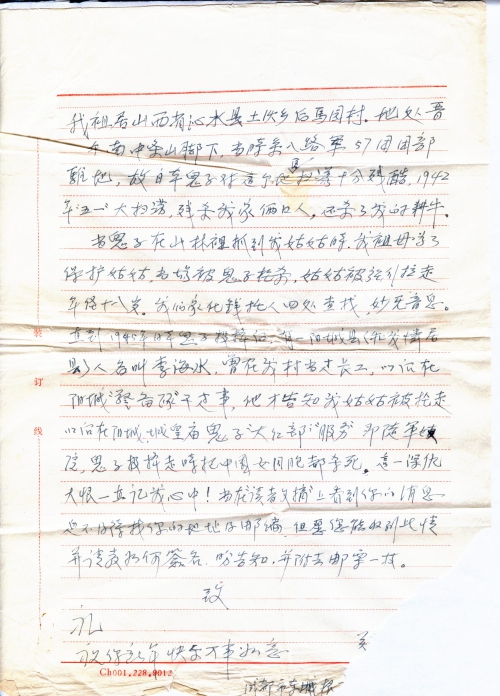 我祖居山西省沁水县土沃乡后马园村。地处晋
东南中条山脚下,当时系八路军57团团部
驻地,故日军鬼子对这个地区扫荡十分残酷,1942
年"五一"大扫荡,残杀我家俩口人,还杀了我的耕牛。
当鬼子在山林里抓到我姑姑时,我祖母为了
保护姑姑,当场被鬼子枪杀,姑姑被强行拉走
年仅十八岁。我们家化钱托人四处查找,妙无音息。
直到1945年日本鬼子投降后,有一阳城县
县)人名叫李海水,曾在我村当过长工,以前在
阳城"警备队"干过事,他才告知我姑姑被抢走
以前在阳城,城里庙鬼子"大红部""服务"即随军妓
院,鬼子投降走时把中国女同胞都杀死。这一深仇
大恨一直记我心中!当我读者文摘"上看到你的消息
但不好意 找你的地址及邮编,但愿您能收到此情
并请教如何签名,盼告知,并附去邮 一枚。
致
礼
祝你新年快乐万事如意
Ch001.228.9012